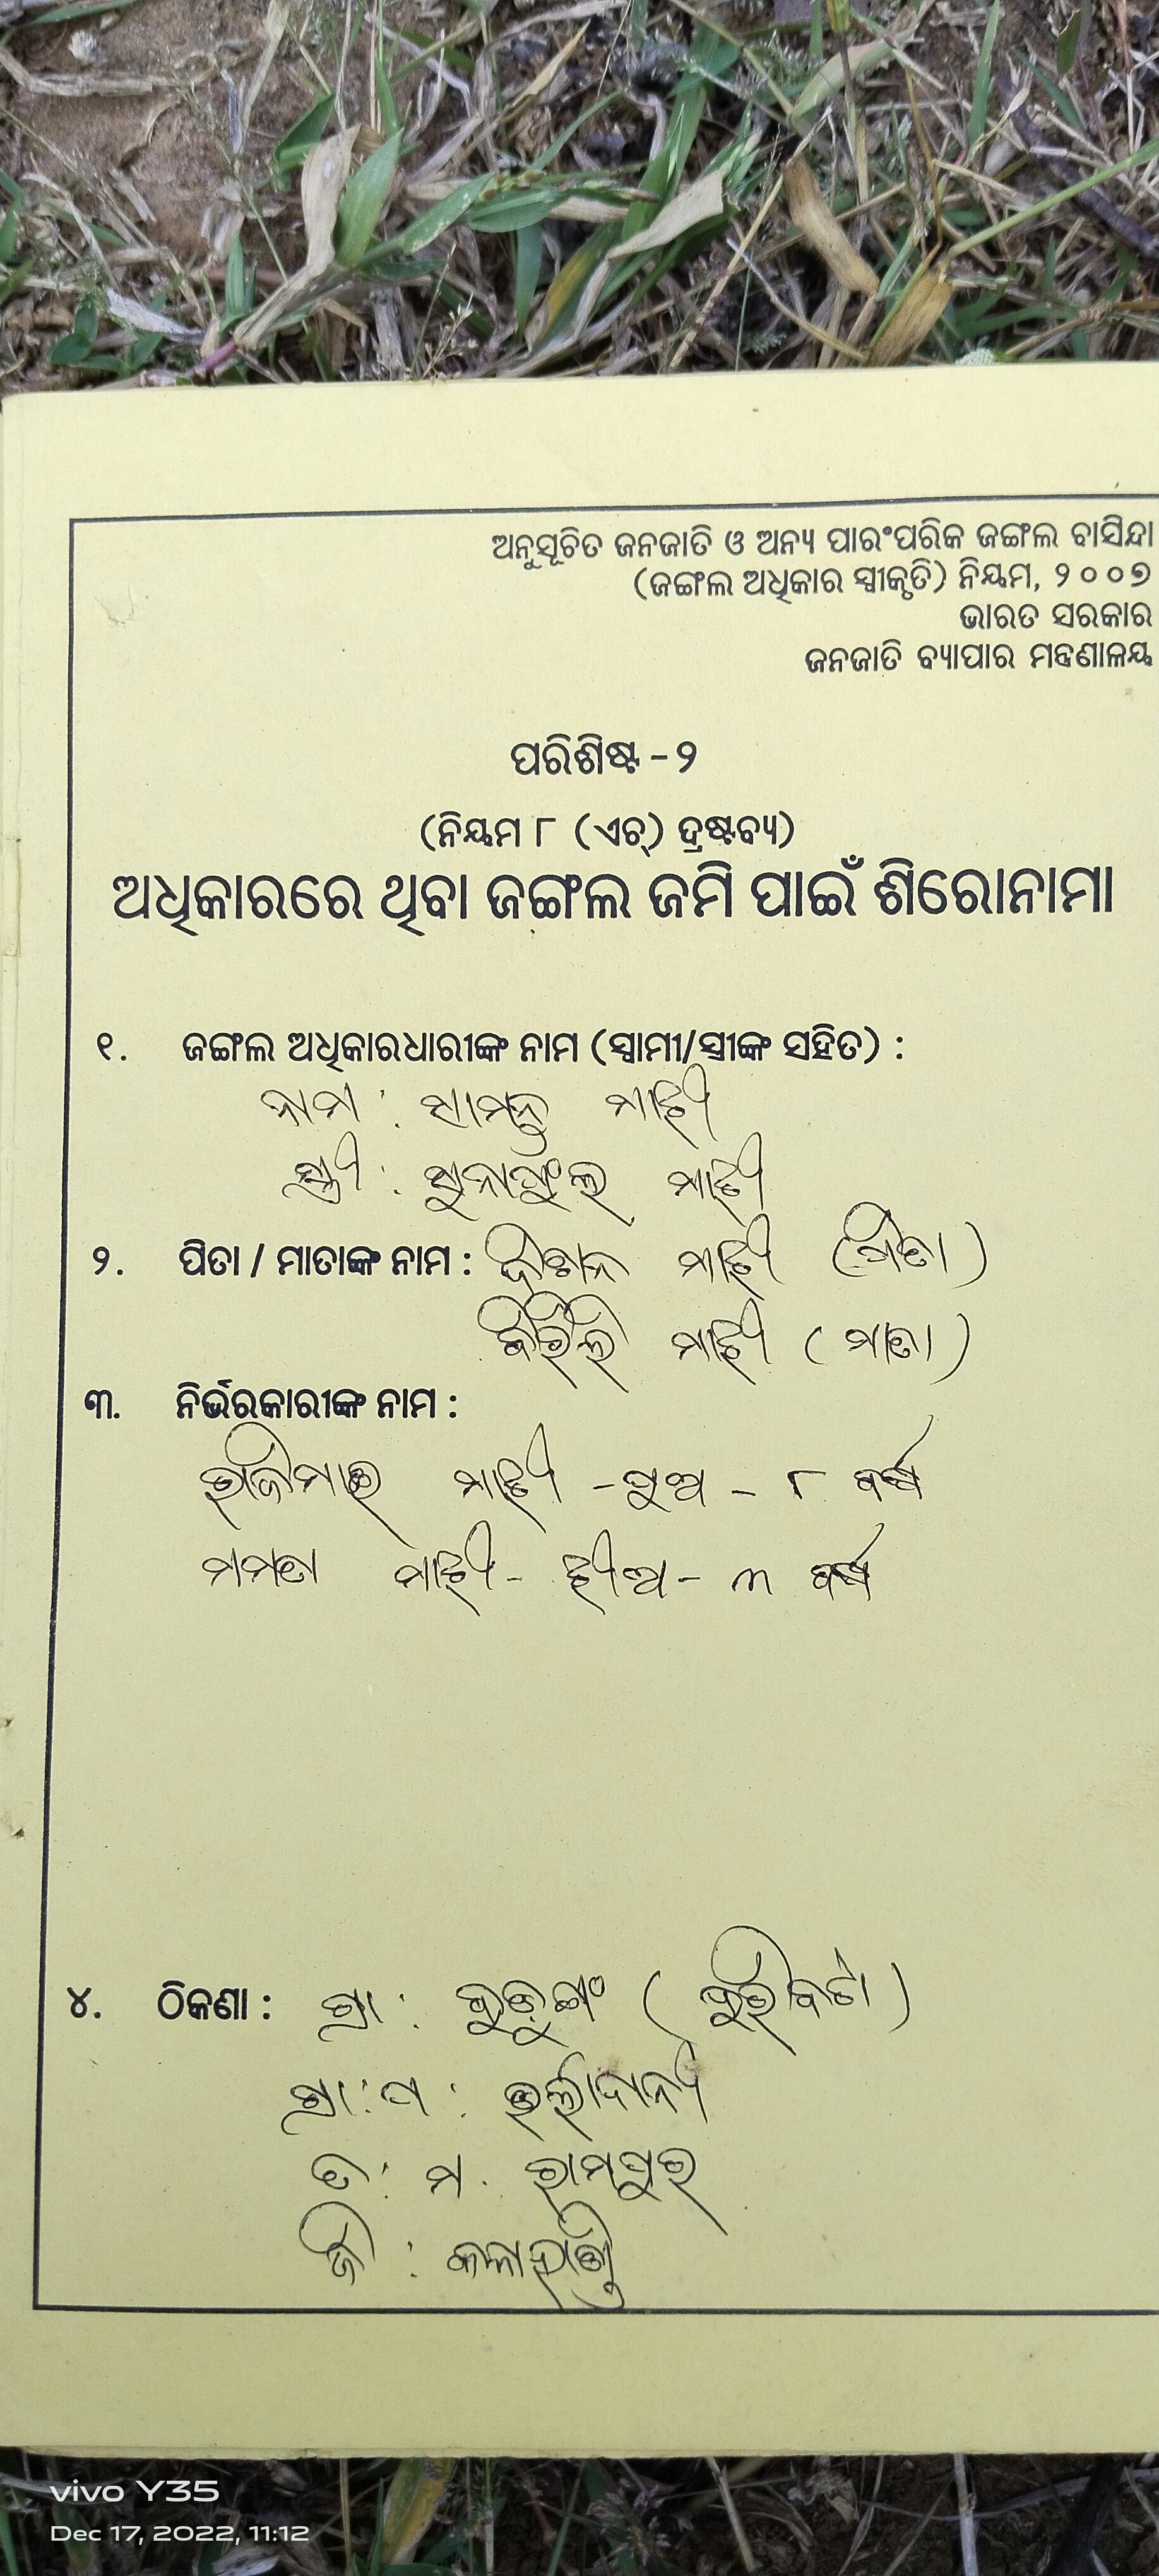 ଅନୁସୂଚିତ ଜନଜାତି ଓ ଅନ୍ୟ ପାରଂପରିକ ଜଙ୍ଗଲ ବାସିନ୍ଦା
(ଜଙ୍ଗଲ ଅଧିକାର ସ୍ୱୀକୃତି) ନିୟମ, ୨୦୦୭
ଭାରତ ସରକାର
ଜନଜାତି ବ୍ୟାପାର ମନ୍ତ୍ରଣାଳୟ
ପରିଶିଷ୍ଟ - ୨
(ନିୟମ ୮ (ଏଚ୍) ଦ୍ରଷ୍ଟବ୍ୟ)
ଅଧିକାରରେ ଥିବା ଜଙ୍ଗଲ ଜମି ପାଇଁ ଶିରୋନାମା
୧. ଜଙ୍ଗଲ ଅଧିକାରଧାରୀଙ୍କ ନାମ (ସ୍ୱାମୀ/ସ୍ତ୍ରୀଙ୍କ ସହିତ) :
ନାମ : ସାମନ୍ତ ମାଝୀ
ସ୍ତ୍ରୀ : ସୁନାଫୁଲ ମାଝୀ
୨. ପିତା / ମାତାଙ୍କ ନାମ : ମାଝୀ (ପିତା)
ମାଝୀ (ମାତା)
୩. ନିର୍ଭରକାରୀଙ୍କ ନାମ :
ମାଝୀ - ପୁଅ - ୮ ବର୍ଷ
ମମତା ମାଝୀ - ଝୀଅ - ୩ ବର୍ଷ
୪. ଠିକଣା : ଗ୍ରା :
ଗ୍ରା : ପ :
ତ : ମ. ରାମପୁର
ଜି : କଳାହାଣ୍ଡି
vivo Y35
Dec 17, 2022, 11:12